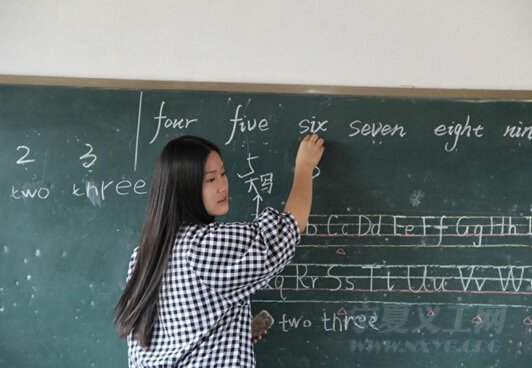 four five six seven eight nin
2 3 5
two three 大写
b Cc Dd Ee Ff Gg Hh I
q Rr Ss Tt Uu V W
two three
宁夏义工网
WWW.NXYG.ORG